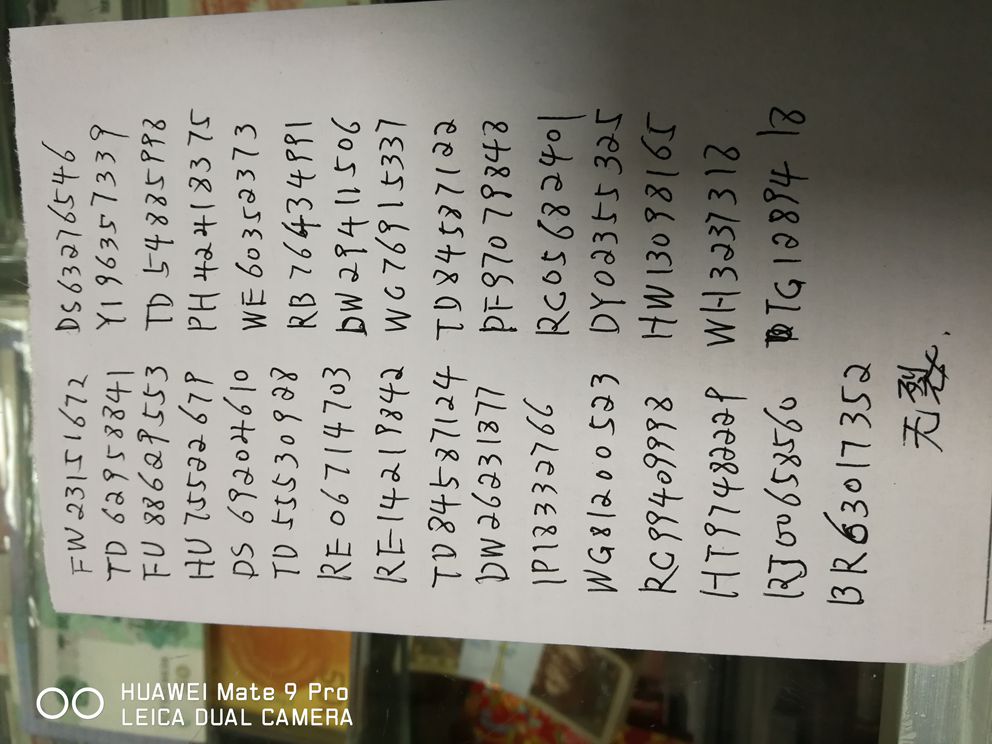 FW23151672 DS63276546
TD62958841 Y196357339
FU88629553 TD54885998
HU75522679 PH42418375
DS69204610 WE60352373
TD55530928 RB76434991
RE06714703 DW29411506
RE14219842 WG76915337
TD84587124 TD84587122
DW26231877 PF97079848
IP18332766 RC05682401
WG81200523 DY02355325
RC99409998 HW13098165
HT97482229 WH13237318
RJ00658560 TG12894 18
BR63017352
无裂.
HUAWEI Mate 9 Pro
LEICA DUAL CAMERA